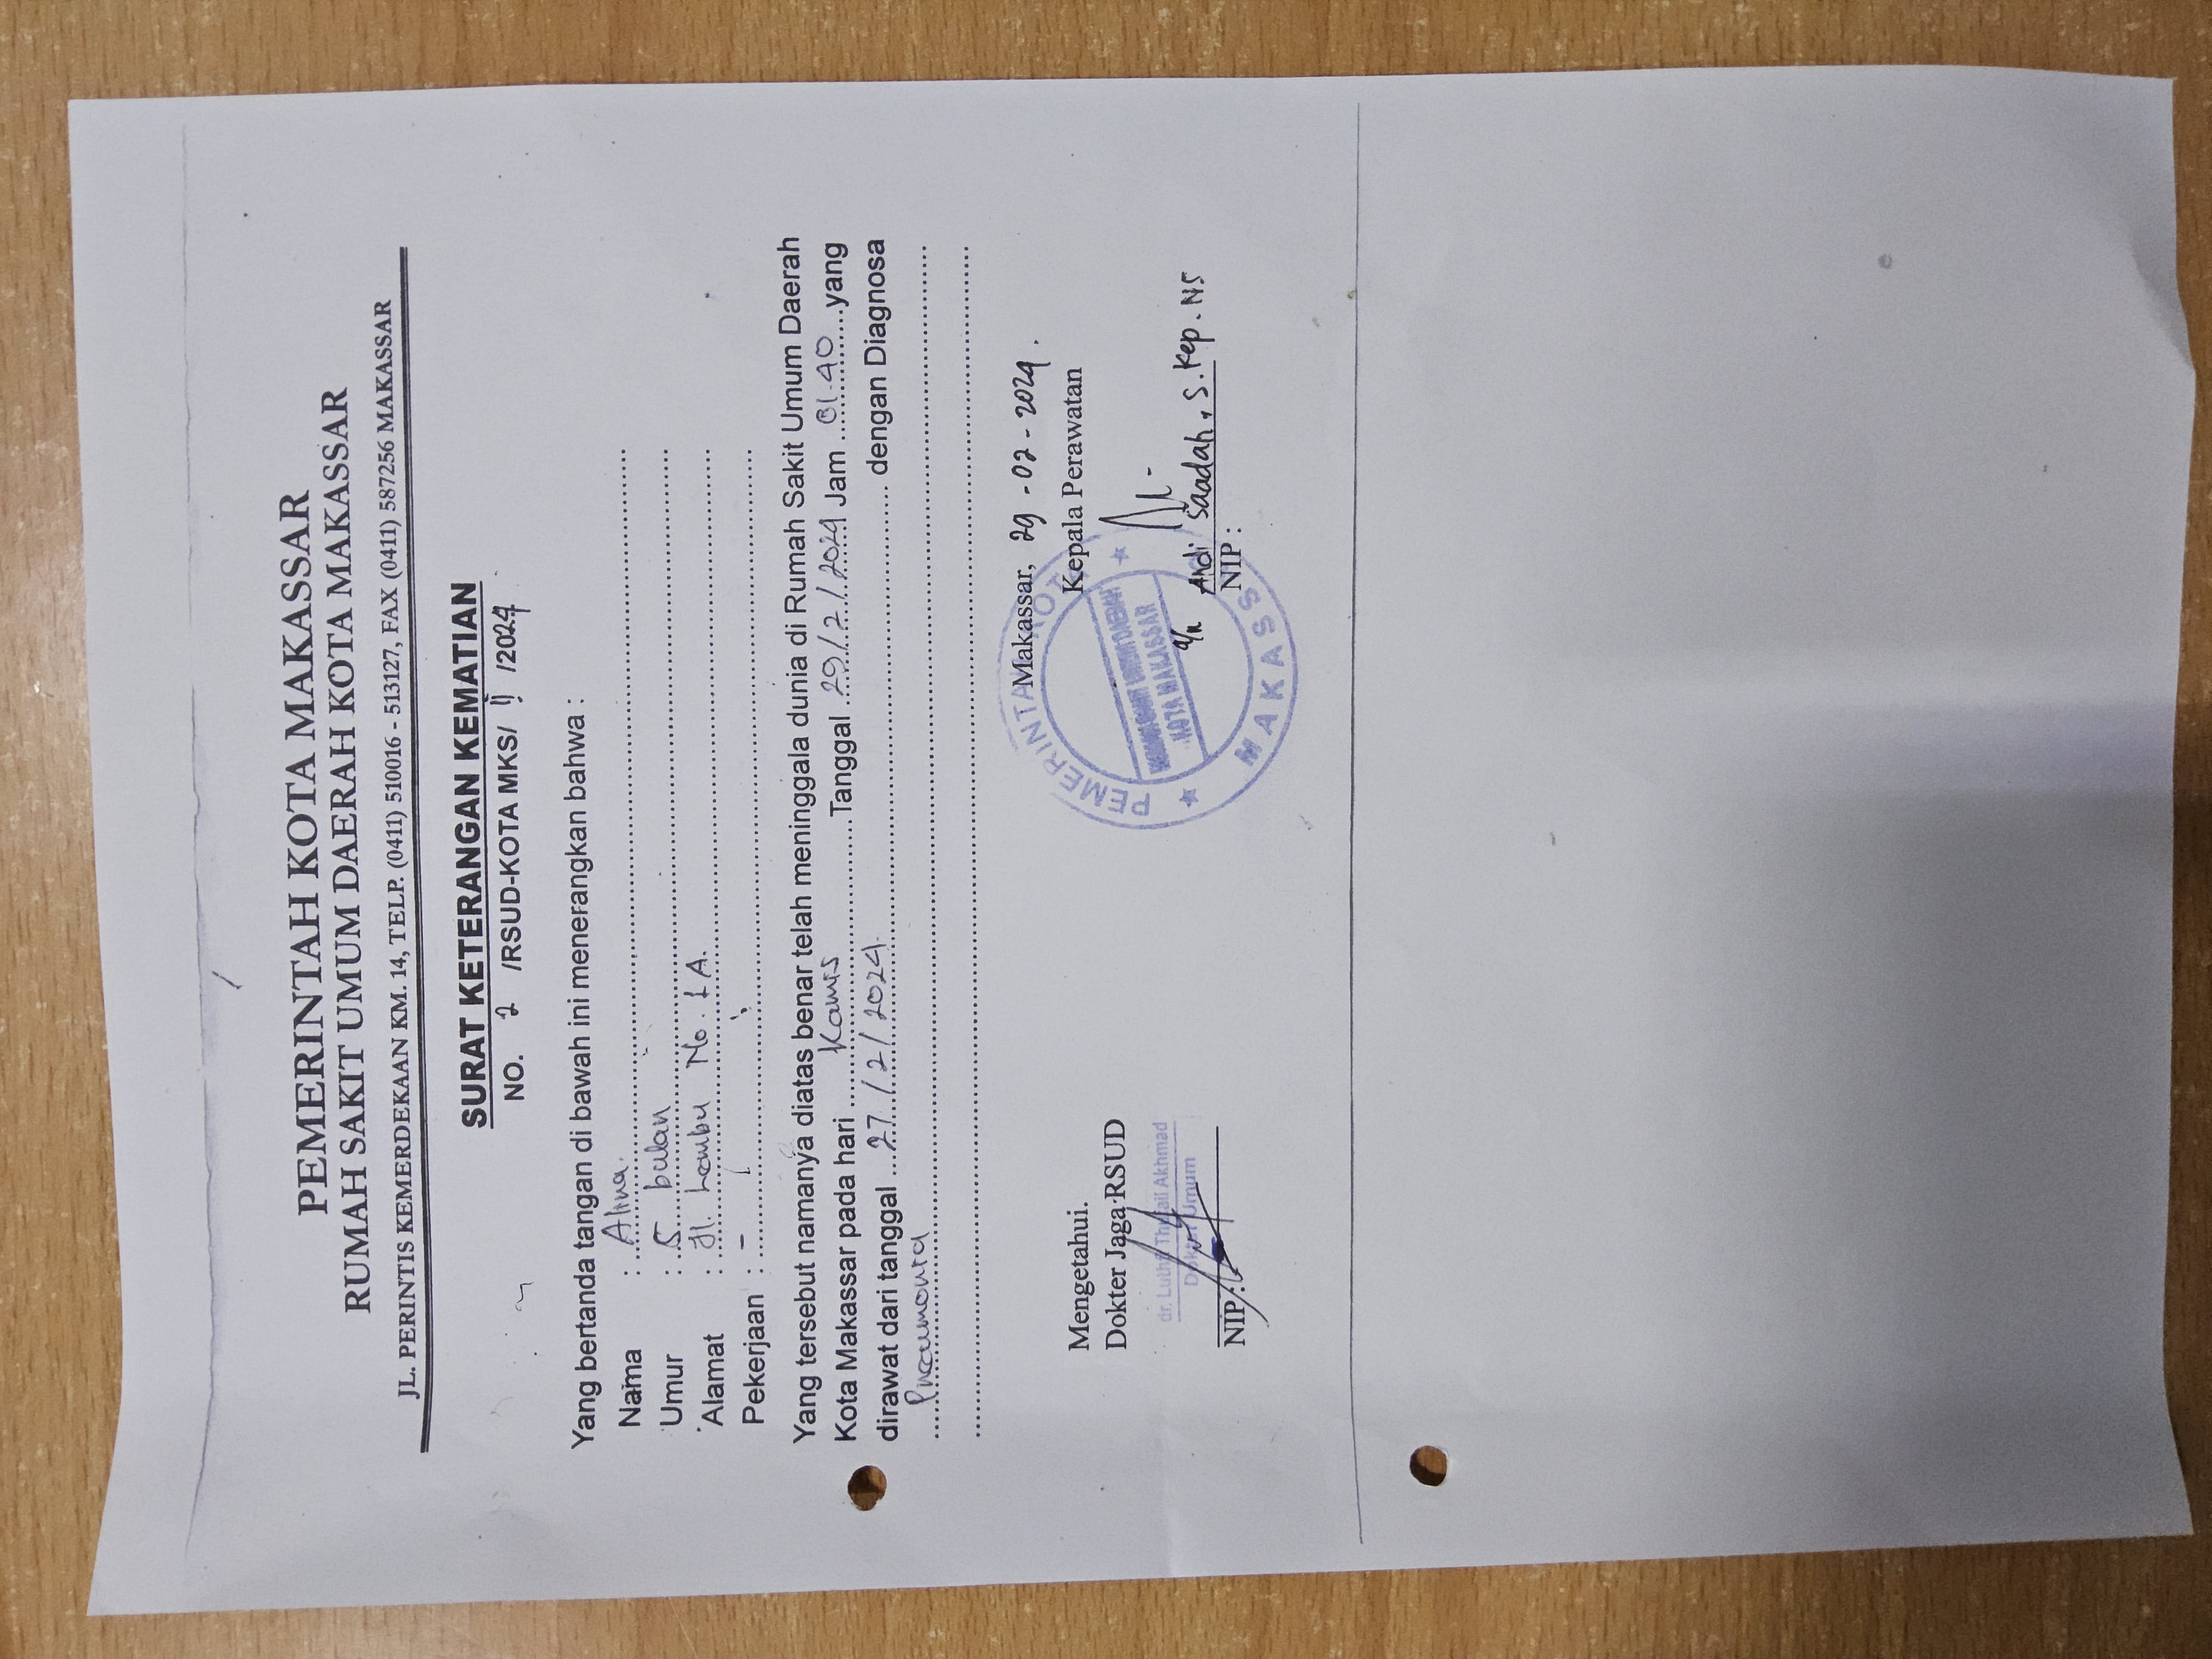 PEMERINTAH KOTA MAKASSAR
RUMAH SAKIT UMUM DAERAH KOTA MAKASSAR
JL. PERINTIS KEMERDEKAAN KM. 14, TELP. (0411) 510016 - 513127, FAX (0411) 587256 MAKASSAR
SURAT KETERANGAN KEMATIAN
NO. 2 /RSUD-KOTA MKS/ II /2024
Yang bertanda tangan di bawah ini menerangkan bahwa :
Nama : Alina.
Umur : 5 bulan
Alamat : Jl. Lembu No. 1A.
Pekerjaan : -
Yang tersebut namanya diatas benar telah meninggala dunia di Rumah Sakit Umum Daerah
Kota Makassar pada hari Kamis Tanggal 29/2/2024 Jam 01.40 yang
dirawat dari tanggal 27/2/2024. dengan Diagnosa
Pneumonia
Makassar, 29-02-2024.
Mengetahui. Kepala Perawatan
Dokter Jaga RSUD
PEMERINTAH KOTA
RUMAH SAKIT UMUM DAERAH
KOTA MAKASSAR
MAKASSAR
Akhmad
Dokter Umum
a/n Andi Saadah, S.Kep.NS
NIP : NIP :